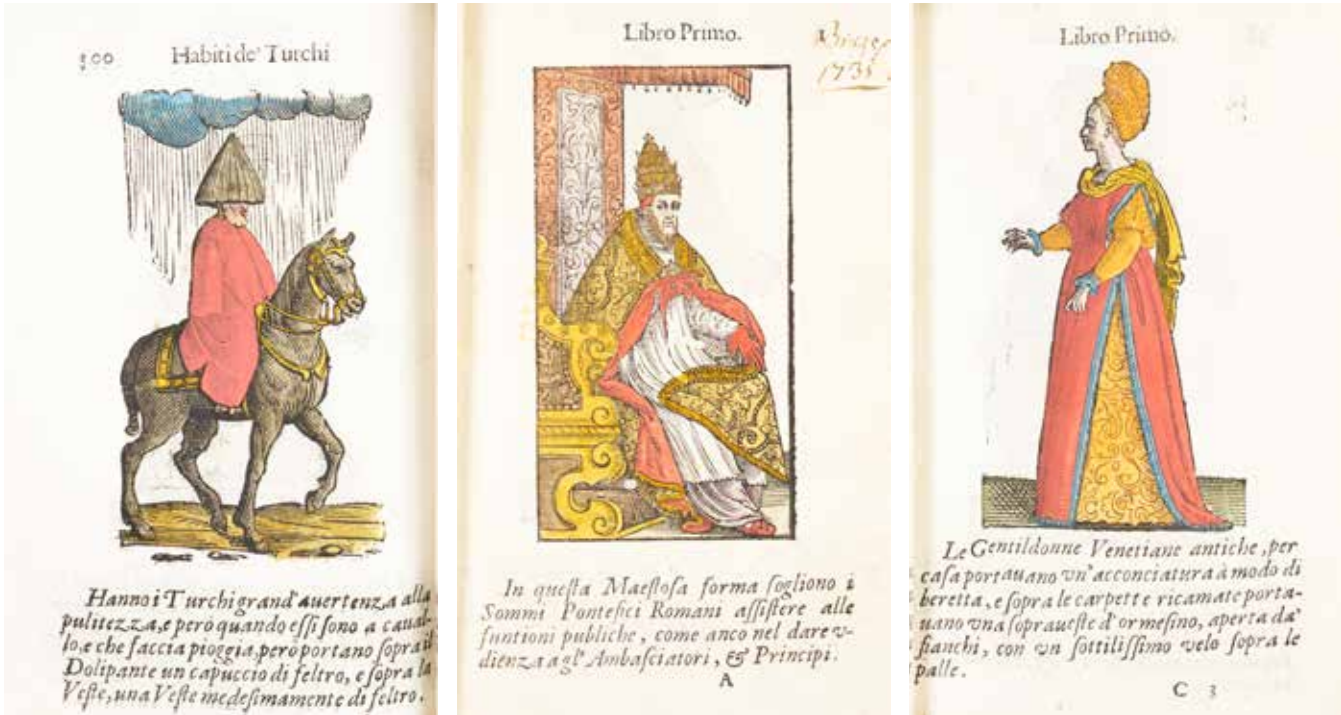 300 Habiti de' Turchi
Hanno i Turchi grand'auertenza alla
pulitezza, e però quando essi sono a caual-
lo, e che faccia pioggia, però portano sopra il
Dolipante un capuccio di feltro, e sopra la
Veste, una Veste medesimamente di feltro.
Libro Primo. 1
1735
In questa Maestosa forma sogliono i
Sommi Pontefici Romani assistere alle
funtioni publiche, come anco nel dare v-
dienza agl'Ambasciatori, & Principi.
A
Libro Primo.
Le Gentildonne Venetiane antiche, per
casa portauano vn'acconciatura à modo di
beretta, e sopra le carpette ricamate porta-
uano vna soprаueste d'ormesino, aperta da'
fianchi, con vn sottilissimo velo sopra le
palle.
C 3